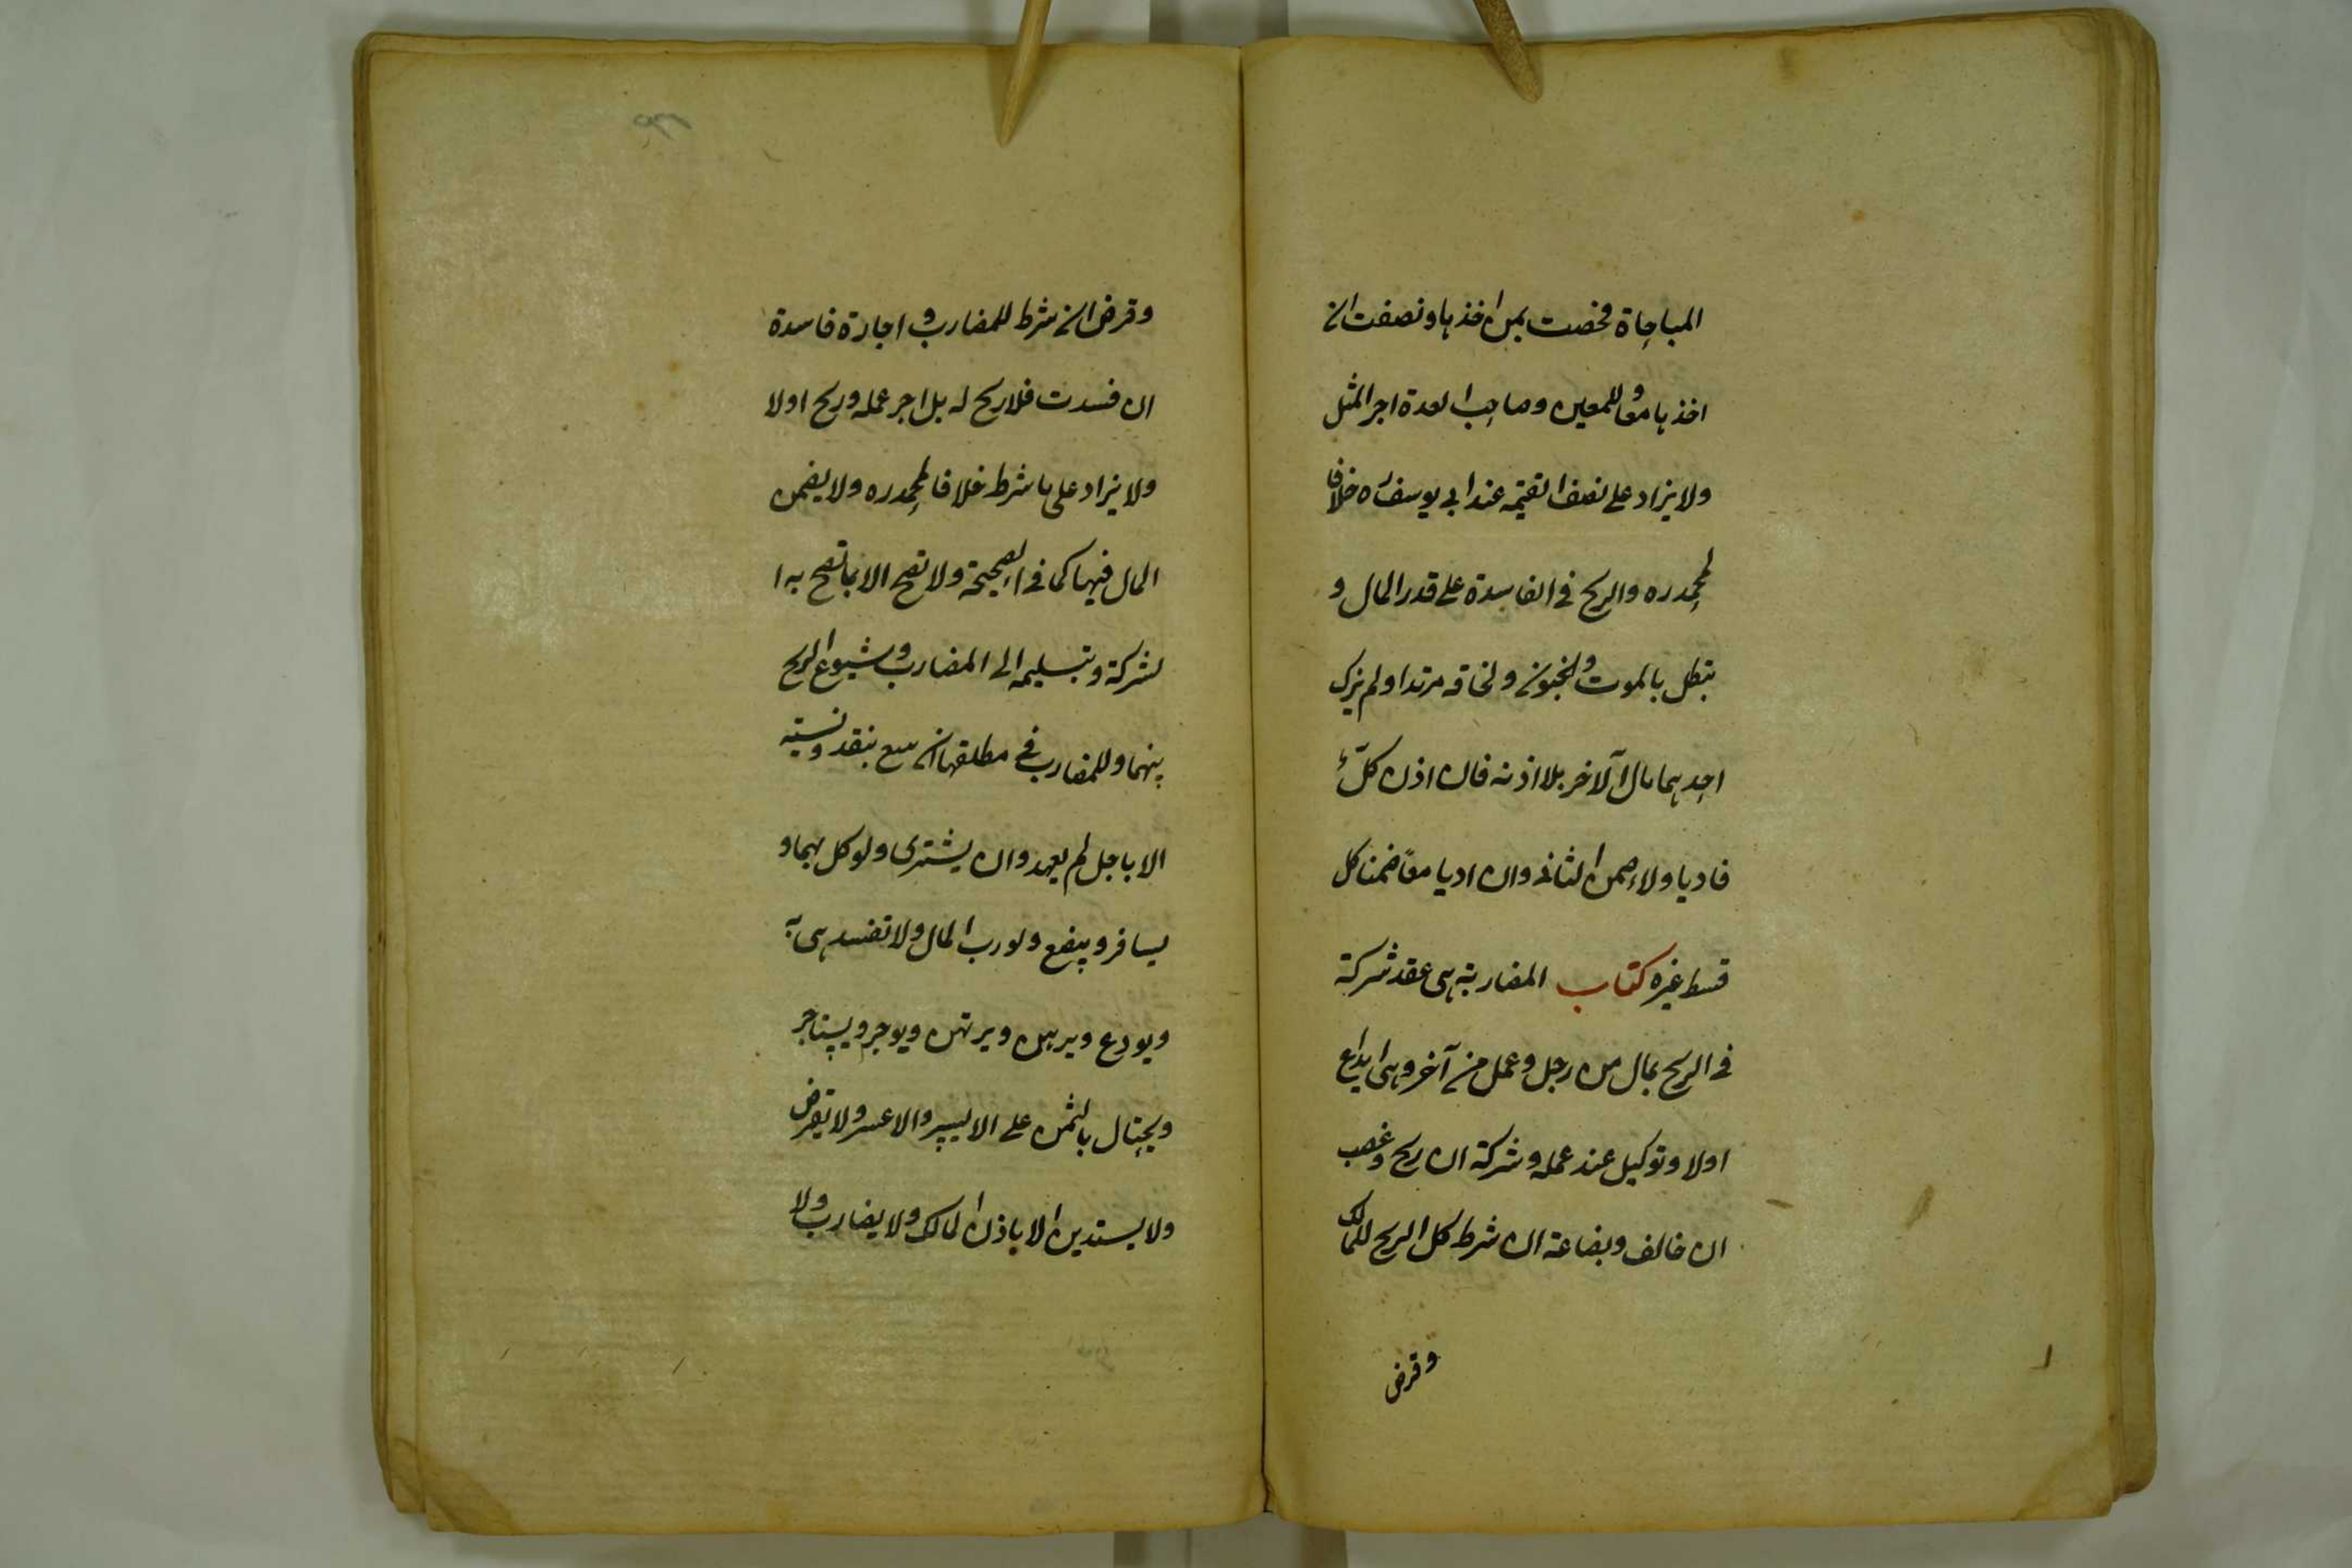 المباحاة فخصت بمن اخذها ونصفت ان
اخذها معا وللمعين وصاحب العدة اجر المثل
ولا يزاد على نصف القيمة عند ابى يوسف ره خلافا
لمحمد ره والربح فى الفاسدة على قدر المال و
تبطل بالموت والجنون ولحاقه مرتدا ولم يزك
احدهما مال الآخر بلا اذنه فان اذن كلّ
فاديا ولاء ضمن الثانى وان اديا معًا ضمنا كل
قسط غيره كتاب المضاربة هى عقد شركة
فى الربح بمال من رجل وعمل من آخر وهى ايداع
اولا وتوكيل عند عمله وشركة ان ربح وغصب
ان خالف وبضاعة ان شرط كل الربح للمالك
وقرض
وقرض ان شرط للمضارب واجارة فاسدة
ان فسدت فلا ربح له بل اجر عمله وربح اولا
ولا يزاد على ما شرط خلافا لمحمد ره ولا يضمن
المال فيها كما فى الصحيحة ولا تصح الا بما تصح به ا
لشركة وبتسليمه الى المضارب وشيوع الربح
بينهما وللمضارب فى مطلقها ان يبيع بنقد ونسية
الا باجل لم يعهد وان يشترى ولوكل بهما و
يسافر ويبضع ولو رب المال ولا تفسد هى به
ويودع ويرهن ويرتهن ويوجر ويستاجر
ويحتال بالثمن على الايسر والاعسر ولا يقرض
ولا يستدين الا باذن المالك ولا يضارب ولا